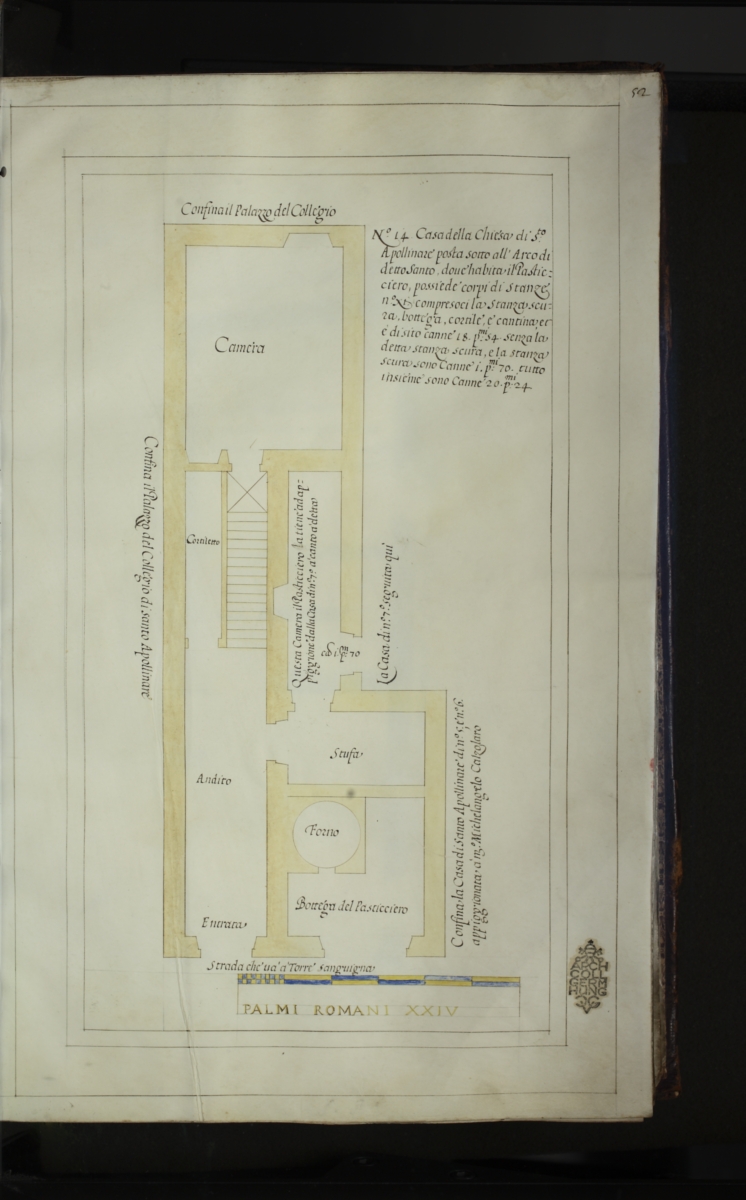 52
Confina il Palazzo del Collegio
N.º 14 Casa della Chiesa di S.to
Apollinare posta sotto all' Arco di
detto Santo, doue habita il Pastic=
ciero, possiede corpi di Stanze
compresoci la Stanza scu=
ra, bottega, cortile, e cantina, et
è di sito canne 18. p.mi 54 senza la
detta stanza scura, e la stanza
scura sono Canne 1. p.mi 70. tutto
insieme sono Canne 20. p.mi 24
Camera
Confina il Palazzo del Collegio di santo Apollinare
Cortiletto
Questa Camera il Pasticciero la tiene ad ap=
piggione dalla Casa di n.º 7.º a canto a detta
1. p.mi 70
La Casa di n.º 7.º seguita qui
Stufa
Andito
Forno
Bottega del Pasticciero
Entrata
Confina la Casa di Santo Apollinare di n.º 5, e n.º 6.
appiggionata à m.º Michelangelo Calzolaro
Strada che uà à Torre sanguigna
PALMI ROMANI XXIV